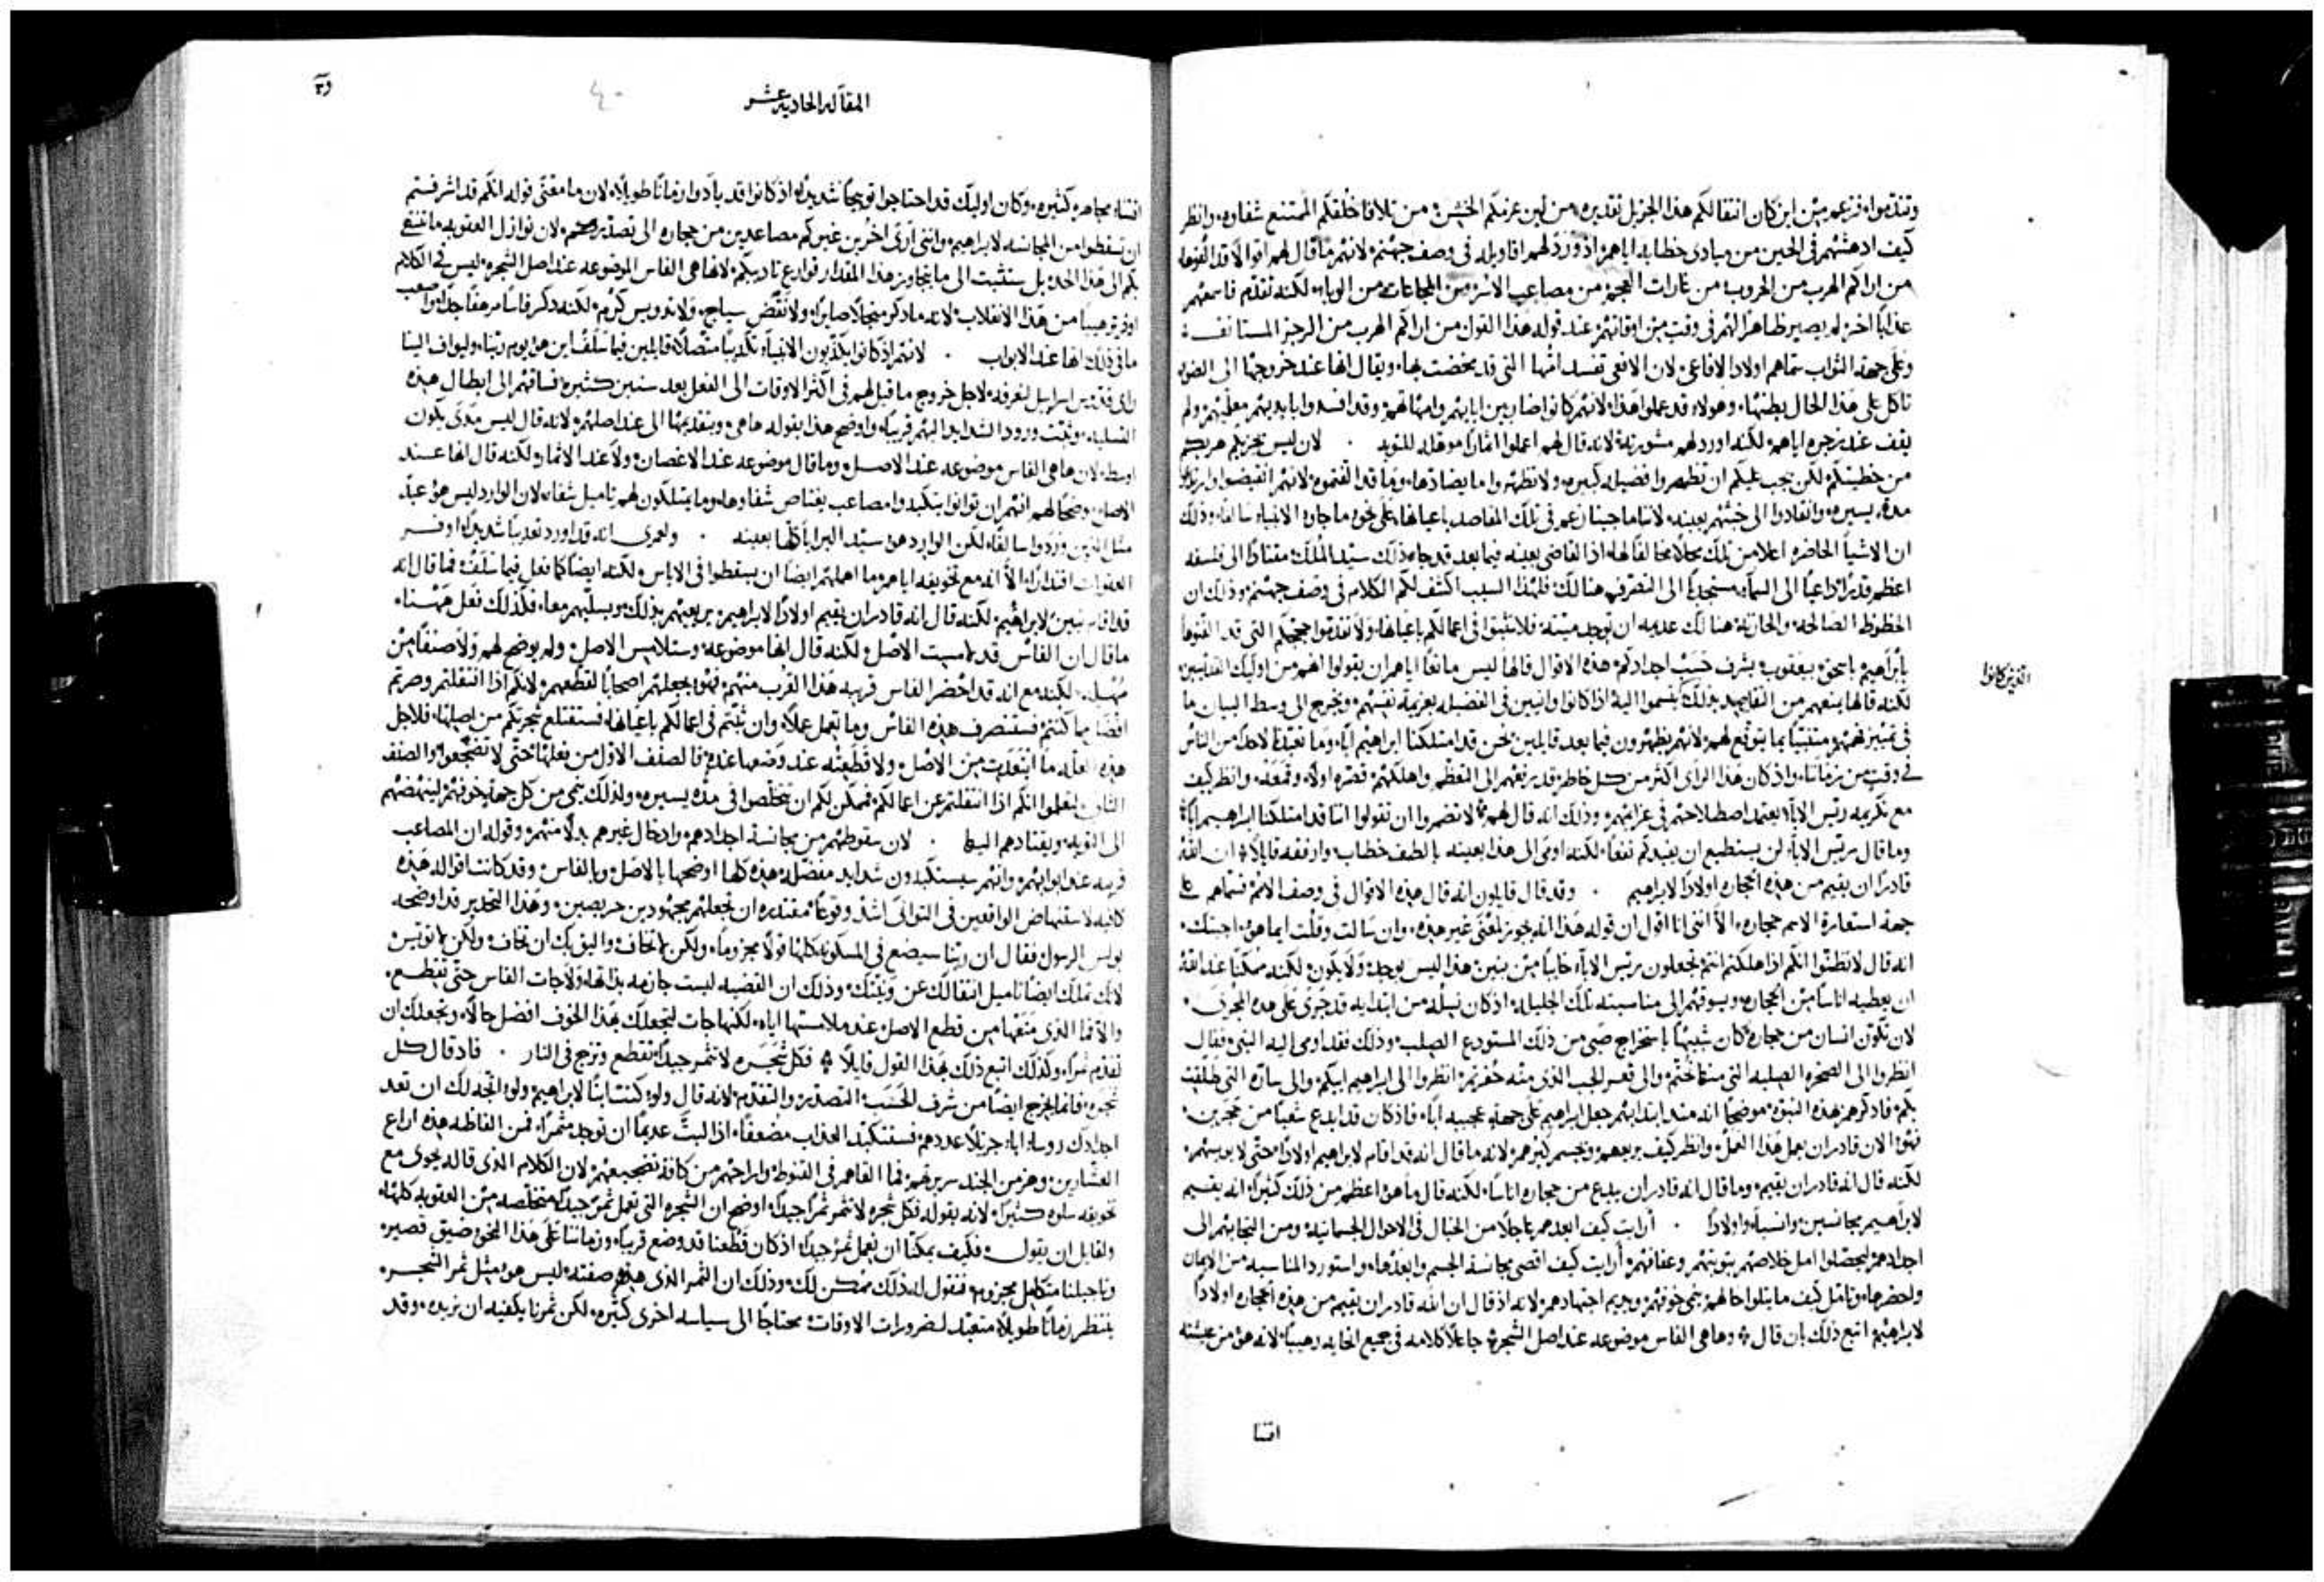 وتندموا
كيف ادهشهم في الحين من مبادي خطابه اياهم اذ اورد لهم اقاويله في وصف جهنم لانهم ما قال لهم اقوالا قد الفوها
من اراكم الهرب من الحروب من غارات العجم من مصاعب الاسر من المجاعات من الوباء لكنه تقدم فاسمعهم
عذابا اخر لم يصير ظاهرا لهم في وقت من اوقاتهم عند قوله هذا القول من اراكم الهرب من الرجز المستانف
وعلى جهة الثواب سماهم اولاد الافاعي لان الافعى تفسد امها التي قد تمخضت بها ويقال انها عند خروجها الى الضوء
تاكل على هذا الحال بطنها وهولاء قد عملوا هذا لانهم كانوا ضاربين ابايهم وامهاتهم وقد افسدوا بايديهم معلميهم ولم
يقف عند زجره اياهم لكنه اورد لهم مشورته لانه قال لهم اعملوا اثمارا موهله للتوبه لان ليس يجزيكم هربكم
من خطيتكم لكن يجب عليكم ان تظهروا فضيله كبيره ولا تظهروا ما يضادها
مدة يسيره وانقادوا الى خبثهم بعينه لاننا ما جينا نزعم في تلك المقاصد باعيانها على نحو ما جاوا الانبياء سالفا وذلك
ان الاشيا الحاضره اعلا من تلك محلا مخالفا لها اذ القاضي بعينه فيما بعد قد جاء ذلك سيد الملك مقتادا الى فلسفه
اعظم قدرا داعيا الى السماء مستجدبا الى التصرف هنالك فلهذا السبب اكشف لكم الكلام في وصف جهنم وذلك ان
الحظوظ الصالحه والحازنه هنالك عديمه ان توجد ميته فلا تثبتوا في اعمالكم باعيانها ولا تقدموا حججكم التي قد الفتوها
بابراهيم باسحق بيعقوب بشرف حسب اجدادكم هذه الاقوال قالها ليس مانعا اياهم ان يقولوا انهم من اوليك القديسين
الذين كانوا
لكنه قالها
في وقت من زماننا واذ كان هذا الراي اكثر من كل خاطر قد رفعهم الى التعظم واهلكهم قصره اولا وقمعه وانظر كيف
مع تكريمه رييس الابا يعتمد اصطلاحهم في عزايمهم وذلك انه قال لهم لا تضمروا ان تقولوا اننا قد امتلكنا ابراهيم ابا
وما قال رييس الابا لن يستطيع ان يفيدكم نفعا لكنه اومى الى هذا بعينه بالطف خطاب وارفقه قايلا ان الله
قادرا ان يقيم من هذه الحجاره اولادا لابراهيم وقد قال قايلون انه قال هذه الاقوال في وصف الامم فسماهم على
جهة استعارة الاسم حجاره الا انني انا اقول ان قوله هذا انه يحوز معنى غير هذه وان سالت وقلت ايما هو اجبتك
انه قال لا تظنوا انكم اذا هلكتم انتم تجعلون رييس الابا خايبا من بنين هذا ليس يوجد ولا يكون لكنه ممكنا عند الله
ان يعطيه اناسا من الحجاره ويسوقهم الى مناسبته تلك الجليله اذ كان نسله من ابتدايه قد جرى على هذه المجرى
لان تكون انسان من حجاره كان شبيها باستخراج صبي من ذلك المستودع الصلب وذلك فقد اومى اليه النبي فقال
انظروا الى الصخره الصلبه التي منها نحتم والى قعر الجب الذي منه حفرتم انظروا الى ابراهيم ابيكم والى ساره التي طلقت
بكم فاذكرهم هذه النبوه موضحا انه منذ ابتدايهم جعل ابراهيم على جهة عجيبه ابا فاذ كان قد ابدع شعبا من حجرين
فهو الان قادر ان يعمل هذا العمل وانظر كيف يريعهم ويحسم كبرهم لانه ما قال انه قد اقام لابراهيم اولادا حتى لا يويسهم
لكنه قال انه قادر ان يقيم وما قال انه قادر ان يبدع من حجاره اناسا لكنه قال ما هو اعظم من ذلك كثيرا انه يقيم
لابراهيم مجانسين وانسباء واولادا ارايت كيف ابعدهم عاجلا من الخيال في الاحوال الجسمانيه ومن التجايهم الى
اجدادهم ليجعلوا امل خلاصهم بتوبتهم وعفافهم ارايت كيف اقصى مجانسة الجسم وابعدها واستورد المناسبه من الايمان
واحضرها وتامل كيف ما يتلوا حالهم ينمي خوفهم ويديم اجتهادهم لانه اذ قال ان الله قادر ان يقيم من هذه الحجاره اولادا
لابراهيم اتبع ذلك بان قال وها هي الفاس موضوعه عند اصل الشجره جاعلا كلامه في جميع الغايه رهيبا لانه هو من عيشته
اقتنا
المقاله الحاديه عشر
اقتناء مجاهره كثيره وكان اوليك قد احتاجوا توبيخا شديدا اذ كانوا قد بادوا زمانا طويلا لان ما معنى قوله انكم قد اشرفتم
ان تسقطوا من المجانسه لابراهيم وانني ارى اخرين غيركم مصاعدين من حجاره الى تصديركم لان نوازل العقوبه ما تنتهي
بكم الى هذا الحد بل ستثبت الى ما يتجاوز هذا المقدار
اوفر ترهيبا من هذا الانقلاب لانه ما ذكر منجلا صابرا ولا نقض سياج ولا تدويس كرم لكنه ذكر فاسا مرهفا جدا
ما في ذلك انها عند الابواب لانهم اذ كانوا يكذبون الانبياء تكذيبا متصلا قايلين فيما سلف اين هو يوم ربنا وليواف الينا
راي قدوس اسراييل لنعرفه لاجل خروج ما قيل لهم في اكثر الاوقات الى الفعل بعد سنين كثيره فساقهم الى ابطال هذه
التسليه وثبت ورود الشدايد اليهم قريبا واوضح هذا بقوله ها هي وبتقديمها الى عند اصلهم لانه قال ليس مدى يكون
اوسطه لان ها هي الفاس موضوعه عند الاصل وما قال موضوعه عند الاغصان ولا عند الاثمار لكنه قال انها عند
الاصل موضحا لهم انهم ان توانوا يتكبدوا مصاعب يعتاص شفاوها وما يتملكون لهم تاميل شفاء لان الوارد ليس هو عبدا
مثل الذين وردوا سالفا لكن الوارد هو سيد البرايا كلها بعينه ولعمري انه قد اورد تعذيبا شديدا اوفر
العقوبات اقتدارا الا انه مع تخويفه اياهم ما اهلهم ايضا ان يسقطوا في الاياس لكنه ايضا كما فعل فيما سلف فما قال انه
قد اقام بنين لابراهيم لكنه قال انه قادر ان يقيم اولادا لابراهيم يريعهم بذلك ويسليهم معا فكذلك فعل ههنا
ما قال ان الفاس قد لامست الاصل لكنه قال انها موضوعه وستلامس الاصل ولم يوضح لهم ولا صنفا من
مهله لكنه مع انه قد احضر الفاس قريبه هذا القرب منهم فهو يجعلهم اصحابا لقطعهم لانكم اذا انتقلتم وصرتم
افضل مما كنتم فستنصرف هذه الفاس وما تعمل عملا وان ثبتم في اعمالكم باعيانها فستقتلع شجرتكم من اصلها فلاجل
هذه العله ما ابتعدت من الاصل ولا قطعته عند وضعها عنده فالصنف الاول من فعلها حتى لا تضجعوا والصنف
الثاني لتعلموا انكم اذا انتقلتم عن اعمالكم فممكن لكم ان تتخلصوا في مدة يسيره ولذلك ينمي من كل جهة خوفهم لينهضهم
الى التوبه ويقتادهم اليها لان سقوطهم من مجانسة اجدادهم وادخال غيرهم بدلا منهم وقوله ان المصاعب
قريبه عند ابوابهم وانهم سيتكبدون شدايد معضله هذه كلها اوضحها بالاصل وبالفاس وقد كانت اقواله هذه
كافيه لاستنهاض الواقعين في التوانى اشد وقوعا مقتدره ان تجعلهم مجهودين حريصين وهذا التحذير قد اوضحه
بولس الرسول فقال ان ربنا سيضع في المسكونه كلها قولا مجزوما ولكن لا تخاف واليق بك ان تخاف ولكن لا تويس
لانك تملك ايضا تاميل انتقالك عن ونيتك وذلك ان القضيه ليست جازمه بذاتها ولا جات الفاس حتى تقطع
والا فما الذي منعها من قطع الاصل عند ملامستها اياه لكنها جات لتجعلك بهذا الخوف افضل حالا وتجعلك ان
تقدم ثمرا وكذلك اتبع ذلك بهذا القول قايلا فكل شجره لا تثمر جيدا تقطع وتزج في النار فاذ قال كل
شجره فانما يخرج ايضا من شرف الحسب التصدير والتقدم لانه قال ولو كنت ابنا لابراهيم ولو اتجه لك ان تعد
اجدادك روساء اباء جزيلا عددهم فستتكبد العذاب مضعفا اذا لبثت عديما ان توجد مثمرا فمن الفاظه هذه اراع
العشارين وهز من الجند سريرتهم فما القاهم في القنوط وازاحهم من كافة تضجيعهم لان الكلام الذي قاله يحوى مع
تخويفه سلوه كثيرا لانه بقوله فكل شجره لا تثمر ثمرا جيدا اوضح ان الشجره التي تعمل ثمرا جيدا متخلصه من العقوبه كلها
ولقايل ان يقول فكيف يمكنا ان نعمل ثمرا جيدا اذ كان قطعنا قد وضع قريبا وزماننا على هذا النحو ضيق قصير
وتاجيلنا متكامل مجزوم فنقول له ذلك ممكن لك وذلك ان الثمر الذي هذه صفته ليس هو مثل ثمر الشجره
ينتظر زمانا طويلا متعبد لضرورات الاوقات محتاجا الى سياسه اخرى كثيره لكن ثمرنا يكفيه ان نريده وقد